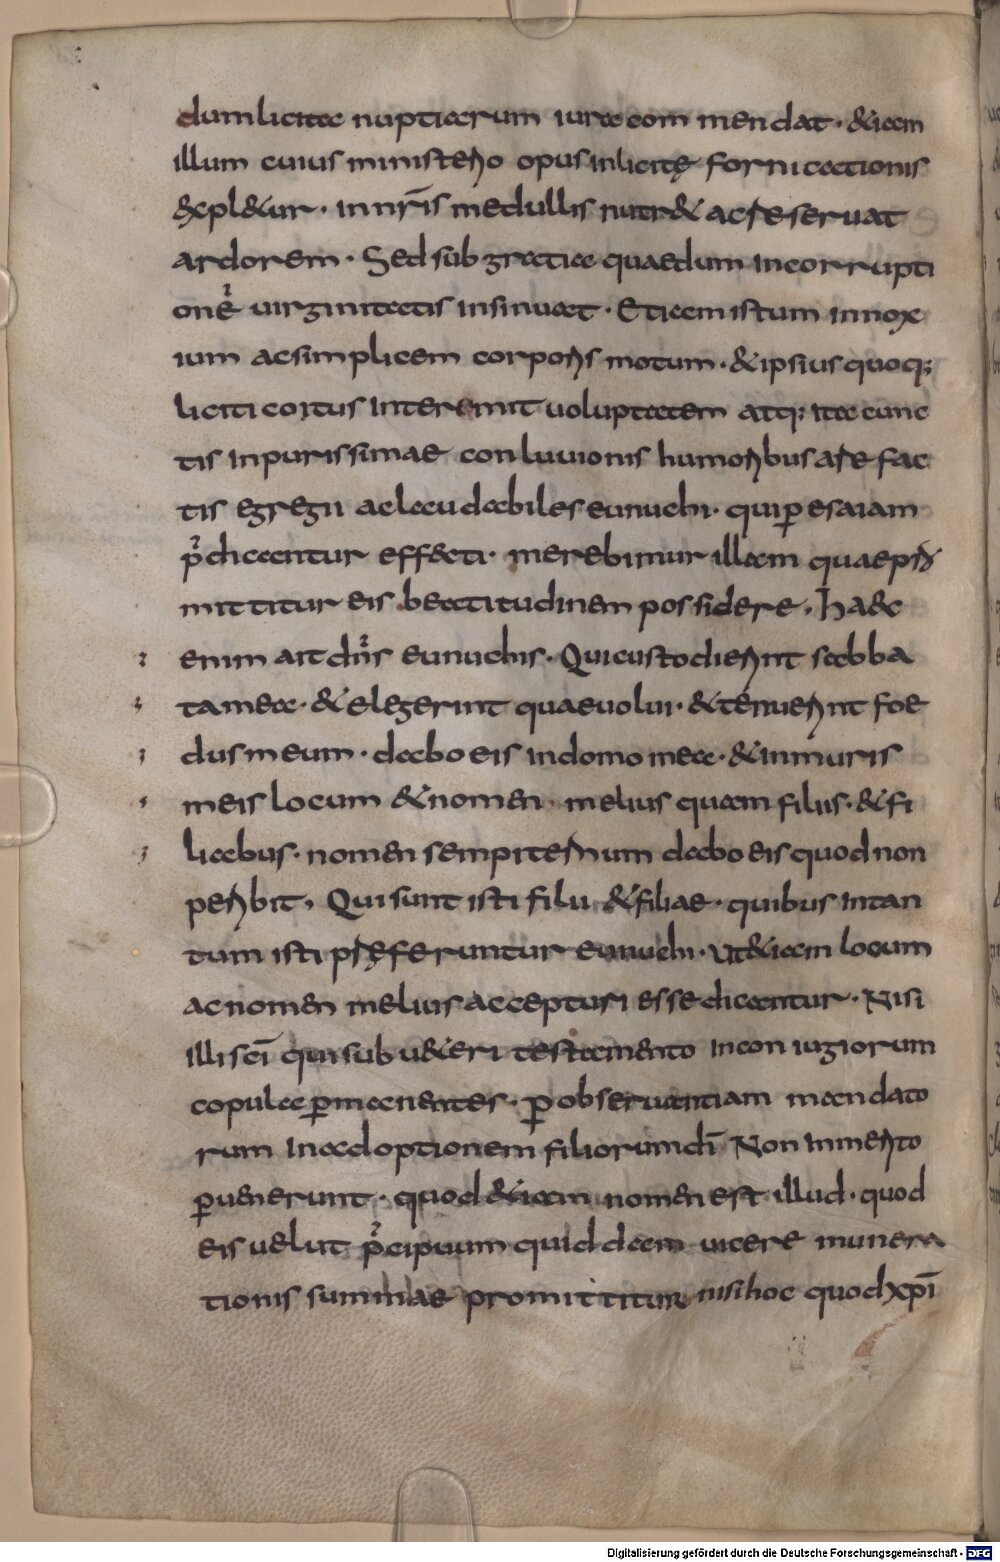 dum licitae nuptiarum iura commendat · & iam
illum cuius ministerio opus inlicitę fornicationis
expl&ur · in nr̄is medullis nutr& ac reseruat
ardorem · Sed sub gratiae quaedam incorrupti
onē uirginitatis insinuat · Etiam istum innox
ium ac simplicem corporis motum · & ipsius quoq;
liciti coitus interemit uoluptatem atq; ita cunc
tis inpurissimae conluuionis humoribus arefac
tis egregii ac laudabiles eunuchi · qui ꝑ esaiam
p̄dicantur effecti · merebimur illam quae pro
mittitur eis beatitudinem possidere · Haec
enim ait dn̄s eunuchis · Qui custodierint sabba
ta mea · & elegerint quae uolui · & tenuerint foe
dus meum · dabo eis in domo mea · & in muris
meis locum & nomen · melius quam filiis · & fi
liabus · nomen sempiternum dabo eis quod non
peribit , Qui sunt isti filii & filiae · quibus in tan
tum isti pręferuntur eunuchi · ut & iam locum
ac nomen melius accepturi esse dicantur · Nisi
illi sc̄i qui sub u&eri testamento in coniugiorum
copula ꝑmanentes · ꝑ obseruantiam mandato
rum in adoptionem filiorum dī Non inmerito
ꝑuenerunt · quod & iam nomen est illud · quod
eis uelut p̄cipuum quiddam uice remunera
tionis summae promittitur nisi hoc quod xp̄i
Digitalisierung gefördert durch die Deutsche Forschungsgemeinschaft - DFG